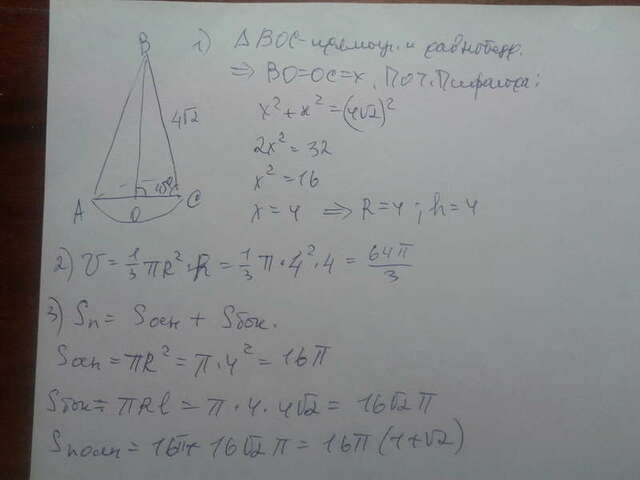 B
4√2
45°
A
O
C
1) ΔBOC - прямоуг. и равнобедр.
⇒ BO=OC=x. По т. Пифагора:
x² + x² = (4√2)²
2x² = 32
x² = 16
x = 4 ⇒ R=4; h=4
2) V = 1/3 πR²·h = 1/3 π·4²·4 = 64π/3
3) Sп = Sосн + Sбок.
Sосн = πR² = π·4² = 16π
Sбок = πRl = π·4·4√2 = 16√2π
Sполн = 16π + 16√2π = 16π(1+√2)